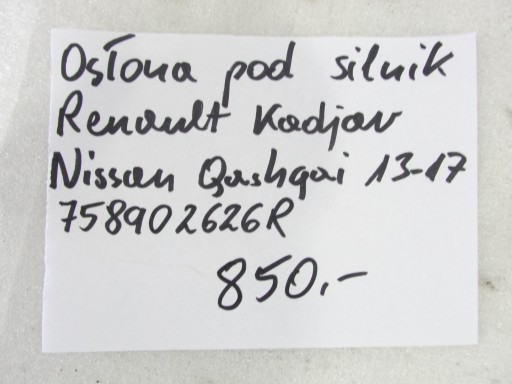 Osłona pod silnik
Renault Kadjar
Nissan Qashqai 13-17
758902626R
850.-